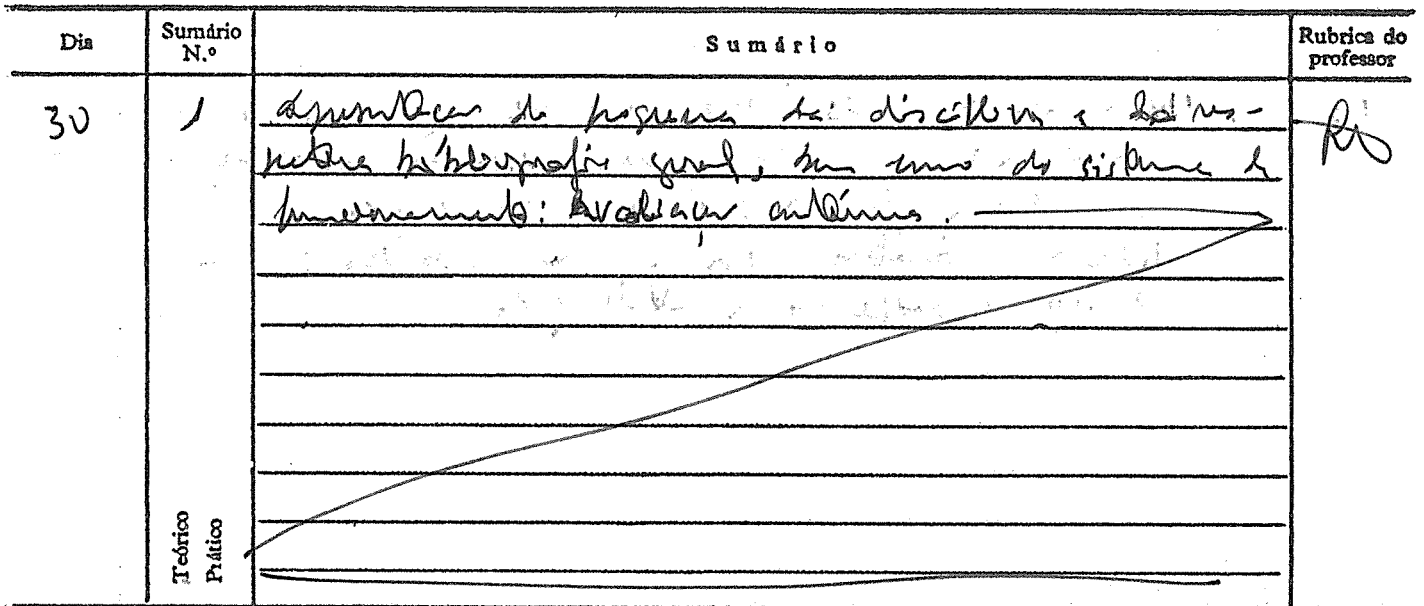 Dia
Sumário N.º
Sumário
Rubrica do professor
30
1
Apresentação do programa da disciplina e da res-
pectiva bibliografia geral, bem como do sistema de
funcionamento: Avaliação contínua.
Teórico
Prático